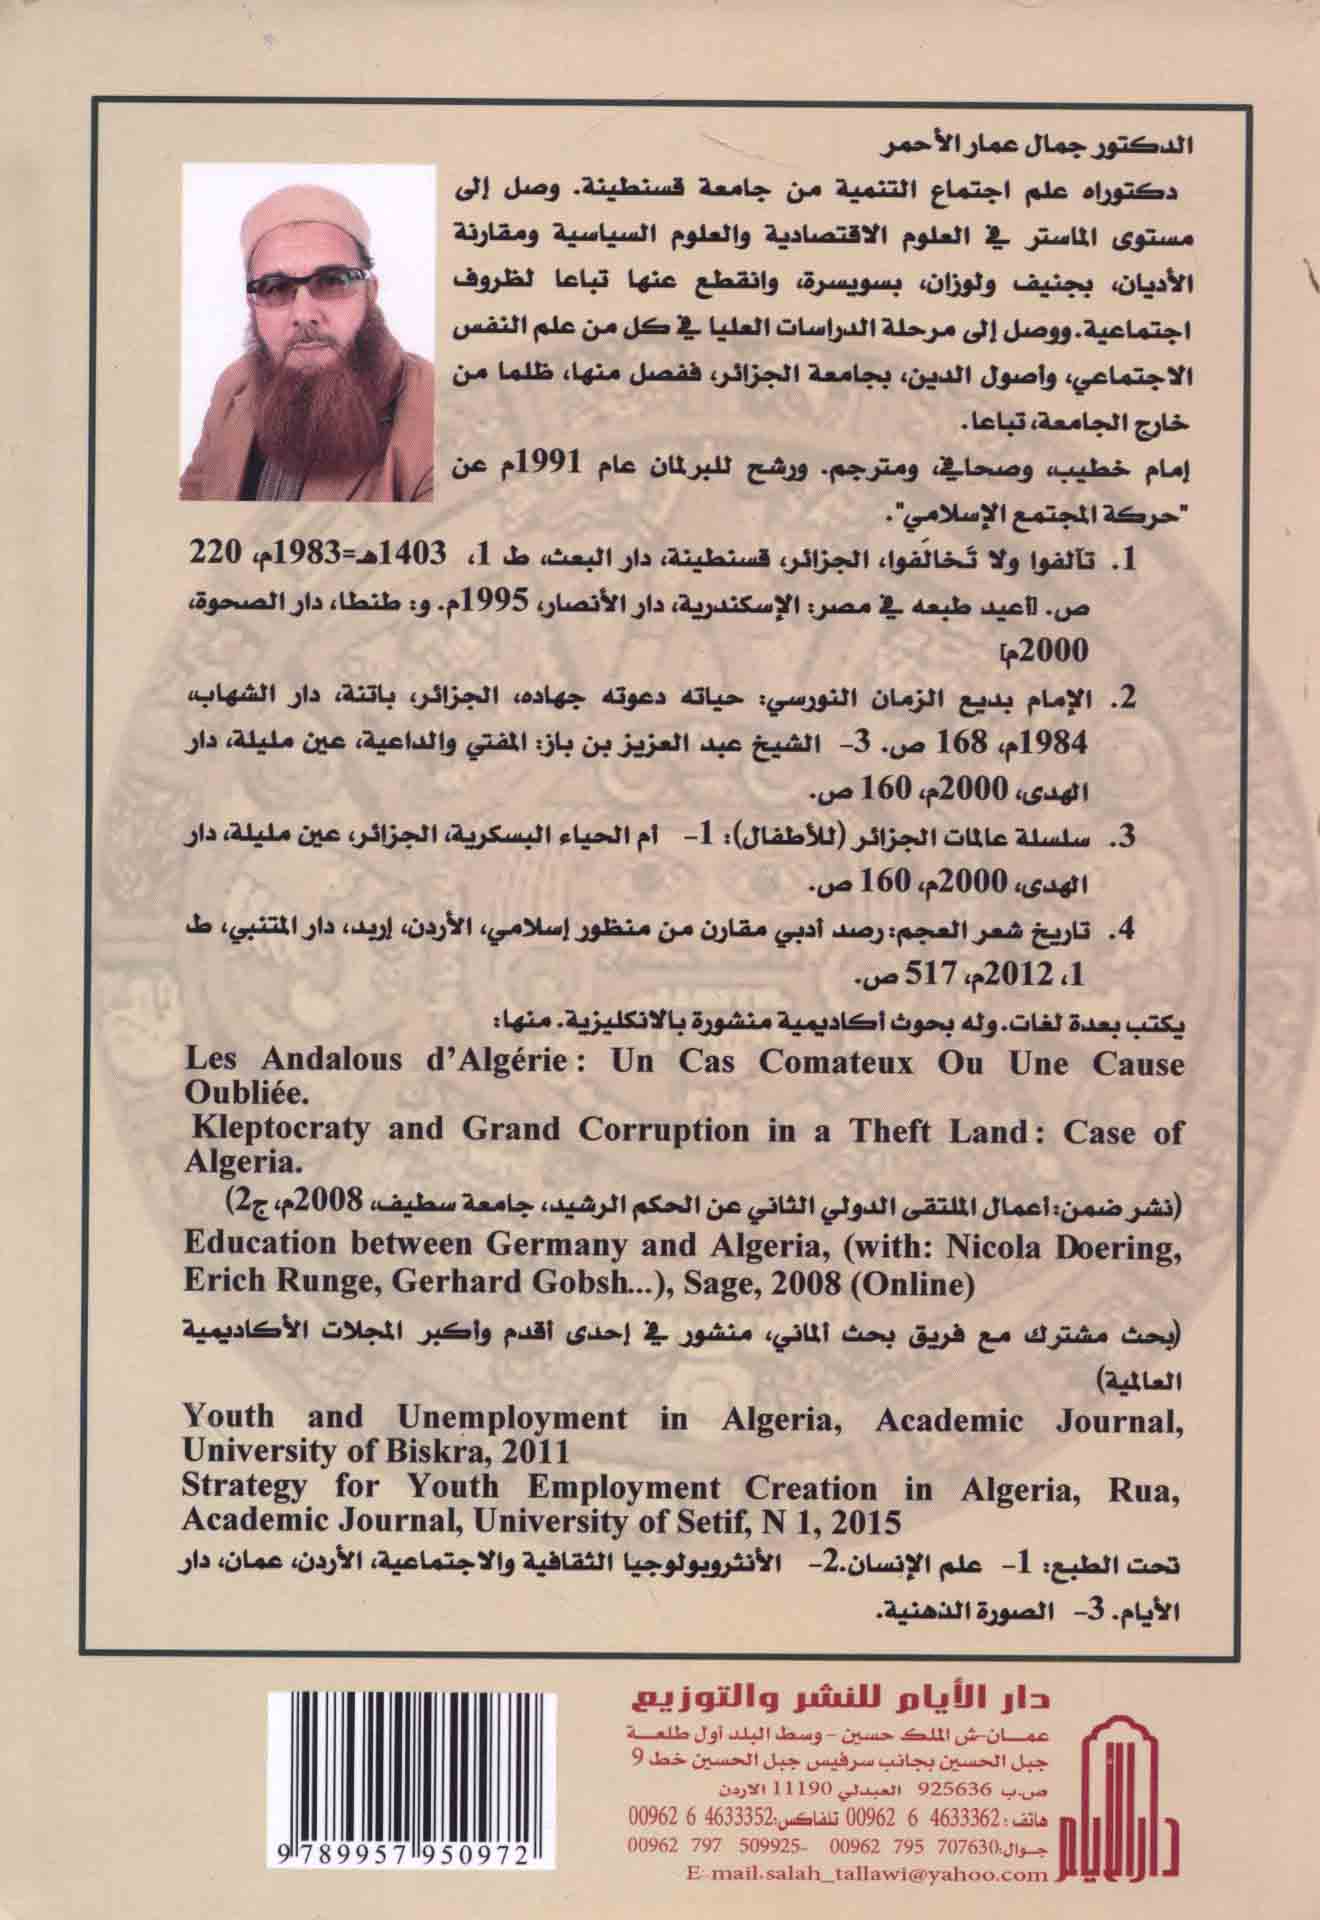 الدكتور جمال عمار الأحمر
دكتوراه علم اجتماع التنمية من جامعة قسنطينة. وصل إلى
مستوى الماستر في العلوم الاقتصادية والعلوم السياسية ومقارنة
الأديان، بجنيف ولوزان، بسويسرة، وانقطع عنها تباعا لظروف
اجتماعية. ووصل إلى مرحلة الدراسات العليا في كل من علم النفس
الاجتماعي، وأصول الدين، بجامعة الجزائر، ففصل منها، ظلما من
خارج الجامعة، تباعا.
إمام خطيب، وصحافي، ومترجم. ورشح للبرلمان عام 1991م عن
"حركة المجتمع الإسلامي".
1. تآلفوا ولا تَخالَفوا، الجزائر، قسنطينة، دار البعث، ط 1، 1403هـ=1983م، 220
ص. [أعيد طبعه في مصر: الإسكندرية، دار الأنصار، 1995م. و: طنطا، دار الصحوة،
2000م]
2. الإمام بديع الزمان النورسي: حياته دعوته جهاده، الجزائر، باتنة، دار الشهاب،
1984م، 168 ص. 3- الشيخ عبد العزيز بن باز: المفتي والداعية، عين مليلة، دار
الهدى، 2000م، 160 ص.
3. سلسلة عالمات الجزائر (للأطفال): 1- أم الحياء البسكرية، الجزائر، عين مليلة، دار
الهدى، 2000م، 160 ص.
4. تاريخ شعر العجم: رصد أدبي مقارن من منظور إسلامي، الأردن، إربد، دار المتنبي، ط
1، 2012م، 517 ص.
يكتب بعدة لغات. وله بحوث أكاديمية منشورة بالانكليزية. منها:
Les Andalous d'Algérie : Un Cas Comateux Ou Une Cause
Oubliée.
Kleptocraty and Grand Corruption in a Theft Land : Case of
Algeria.
(نشر ضمن: أعمال الملتقى الدولي الثاني عن الحكم الرشيد، جامعة سطيف، 2008م، ج2)
Education between Germany and Algeria, (with: Nicola Doering,
Erich Runge, Gerhard Gobsh...), Sage, 2008 (Online)
(بحث مشترك مع فريق بحث ألماني، منشور في إحدى أقدم وأكبر المجلات الأكاديمية
العالمية)
Youth and Unemployment in Algeria, Academic Journal,
University of Biskra, 2011
Strategy for Youth Employment Creation in Algeria, Rua,
Academic Journal, University of Setif, N 1, 2015
تحت الطبع: 1- علم الإنسان. 2- الأنثروبولوجيا الثقافية والاجتماعية، الأردن، عمان، دار
الأيام. 3- الصورة الذهنية.
دار الأيام للنشر والتوزيع
عمــان-ش الملك حسين - وسط البلد أول طلعة
جبل الحسين بجانب سرفيس جبل الحسين خط 9
ص.ب 925636 العبدلي 11190 الاردن
هاتف: 4633362 6 00962 تلفاكس: 4633352 6 00962
جوال: 707630 795 00962 - 509925 797 00962
E-mail.salah_tallawi@yahoo.com
دار الأيام
9 789957 950972